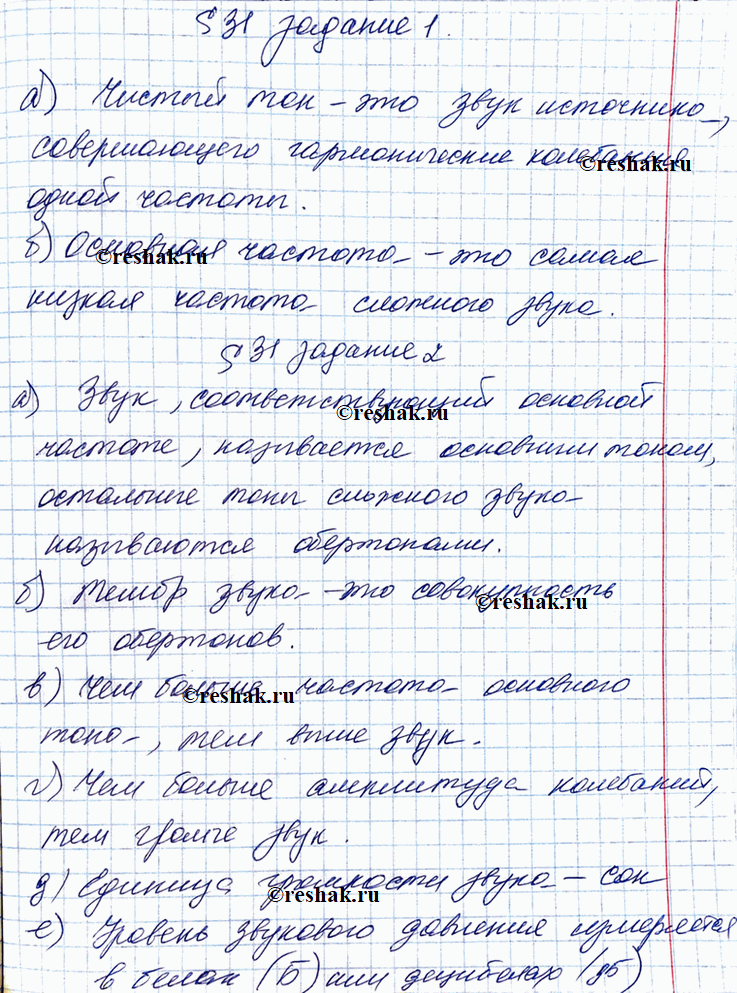 § 31 задание 1.
а) Чистый тон - это звук источника,
совершающего гармонические колебания
©reshak.ru
одной частоты.
б) Основная частота - это самая
©reshak.ru
низкая частота сложного звука.
§ 31 задание 2
а) Звук, соответствующий основной
©reshak.ru
частоте, называется основным тоном,
остальные тоны сложного звука
называются обертонами.
б) Тембр звука - это совокупность
©reshak.ru
его обертонов.
в) Чем больше частота основного
©reshak.ru
тона, тем выше звук.
г) Чем больше амплитуда колебаний,
тем громче звук.
д) Единица громкости звука - сон
©reshak.ru
е) Уровень звукового давления измеряется
в белах (Б) или децибелах (дБ)